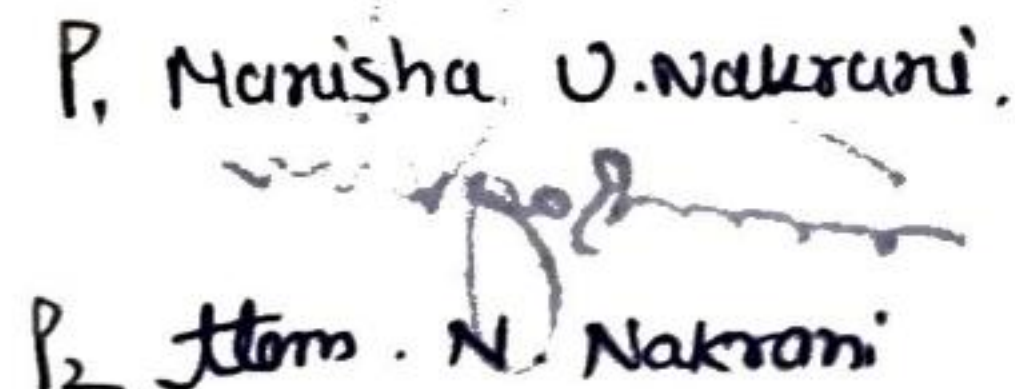 P, Manisha U. Nakrani.
P2 N. Nakrani